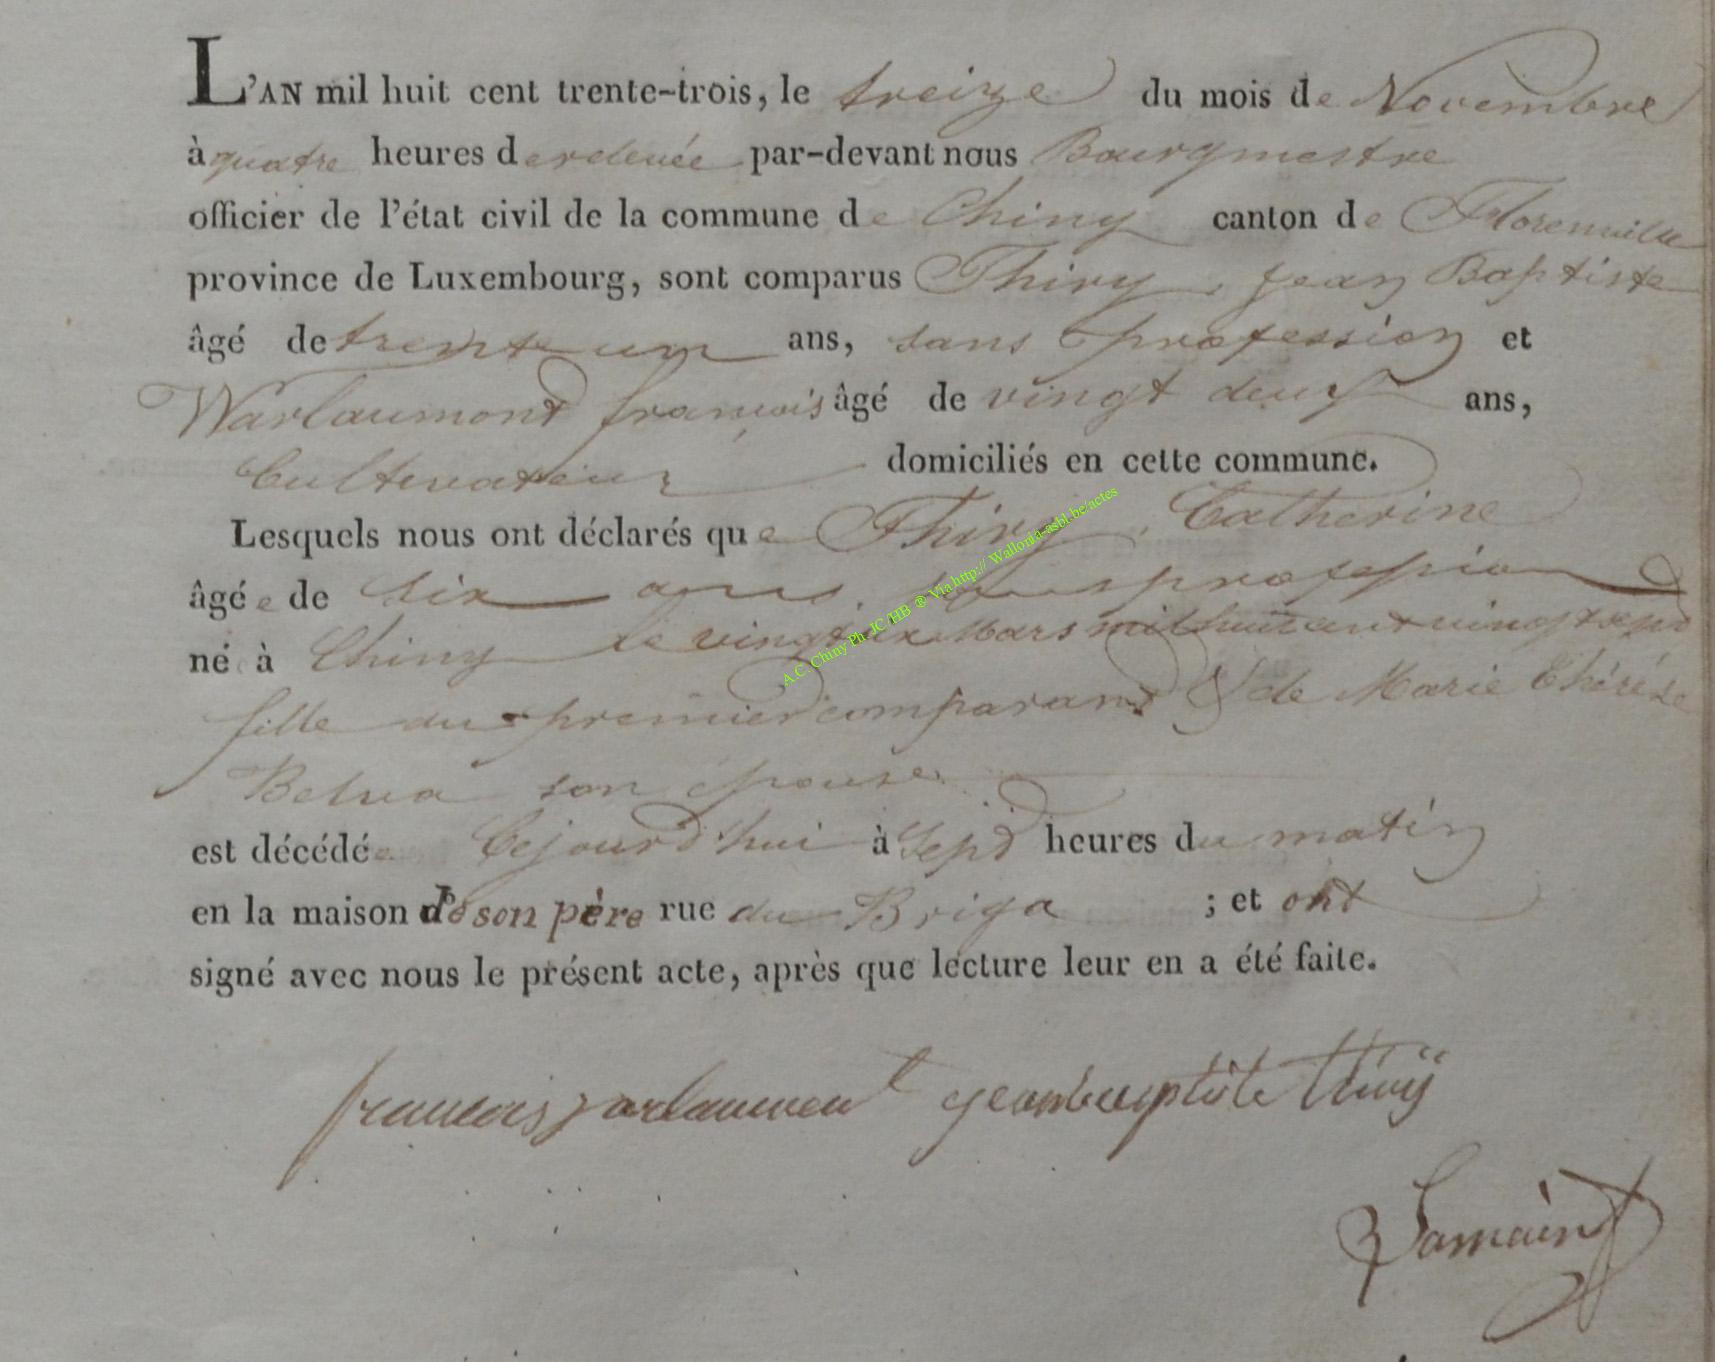 L'AN mil huit cent trente-trois, le treize du mois de Novembre
à quatre heures de relevée par-devant nous Bourgmestre
officier de l'état civil de la commune de Chiny canton de Florenville
province de Luxembourg, sont comparus Thiry, Jean Baptiste
âgé de trente un ans, sans profession et
Warlaumont françois âgé de vingt deux ans,
Cultivateur domiciliés en cette commune.
Lesquels nous ont déclarés que Thiry, Catherine
âgée de six ans, sans profession
né à Chiny le vingt six Mars mil huit cent vingt sept
fille du premier comparant & de Marie Thérèse
Belva son épouse
est décédée Cejourd'hui à sept heures du matin
en la maison de son père rue du Briga ; et ont
signé avec nous le présent acte, après que lecture leur en a été faite.
francois warlaumont jean baptiste thiry
A.C. Chiny Ph JC/HB ® Via http:// Wallonia-asbl.be/actes